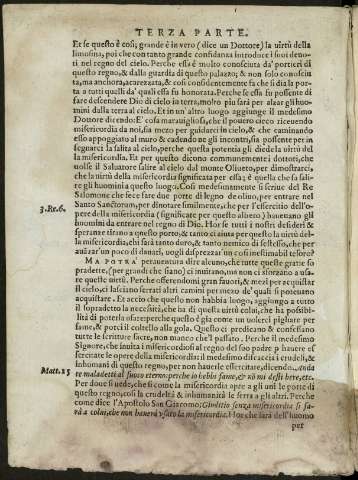 TERZA PARTE.
Et se questo è così, grande è in vero (dice un Dottore) la uirtù della
limosina, poi che con tanto grande confidanza introduce i suoi deuo-
ti nel regno del cielo. Perche essa è molto conosciuta da' portieri di
questo regno, & dalla guardia di questo palazzo; & non solo conosciu
ta, ma anchora, accarezzata, & così confidentemente fa che si dia la por
ta a tutti quelli da' quali essa fu honorata. Perche se essa fu possente di
fare descendere Dio di cielo in terra, molto piu sarà per alzar gli huo-
mini dalla terra al cielo. Et in un'altro luogo aggiunge il medesimo
Dottore dicendo: E' cosa marauigliosa, che il pouero cieco riceuendo
misericordia da noi, sia mezo per guidarci in cielo, & che caminando
esso appoggiato al muro & cadendo ne gli incontri, sia possente per in
segnarci la salita al cielo, perche questa potentia gli diede la uirtù del
la misericordia. Et per questo dicono communemente i dottori, che
uolse il Saluatore salire al cielo dal monte Oliueto, per dimostrarci,
che la uirtù della misericordia significata per essa; è quella che fa sali-
re gli huomini a questo luogo. Così medesimamente si scriue del Re
Salomone che fece fare due porte di legno de oliuo, per entrare nel
3. Re. 6. Santo Sanctorum, per dinotare similmente, che per l'essercitio dell'o-
pere della misericordia (significate per questo albero) haueuano gli
huomini da entrare nel regno di Dio. Hor se tutti i nostri desideri &
speranze stano a questo porto; & tanto ci aiuta per questo la uirtù del-
la misericordia, chi sarà tanto duro, & tanto nemico di se stesso, che per
auàzar un poco di danari, uogli disprezzar un così inestimabil tesoro?
MA POTRA' per auentura dire alcuno, che tutte queste gratie so
pradette, (per grandi che siano) ci inuitano, ma non ci sforzano a usa-
re queste uirtù. Perche offerendomi gran fauori, & mezi per acquistar
il cielo, ci lasciano serrati altri camini per mezo de' quali si poteuano
acquistare. Et accio che questo non habbia luogo, aggiungo a tutto
il sopradetto la necessità, che ha di questa uirtù colui, che ha possibi-
lità di poterla osare perche questo è già come un uolerci pigliare per
fame, & porci il coltello alla gola. Questo ci predicano & confessano
tutte le scritture sacre, non manco che'l passato. Perche il medesimo
Signore, che inuita i misericordiosi al regno del suo padre p hauere es
sercitate le opere della misericordia: il medesimo discaccia i crudeli, &
inhomani di questo regno, per non hauerle essercitate, dicendo. Anda
Matt. 25 te maladetti al fuoco eterno: perche io hebbi fame, & nō mi desti bere, etc.
Per doue si uede, che si come la misericordia apre a gli uni le porte di
questo regno, così la crudeltà & inhumanità le serra a gli altri. Perche
come dice l'Apostolo San Giacomo; Giuditio senza misericordia si fa-
rà a colui, che non hauerà usato la misericordia. Hor che sarà dell'huomo
per